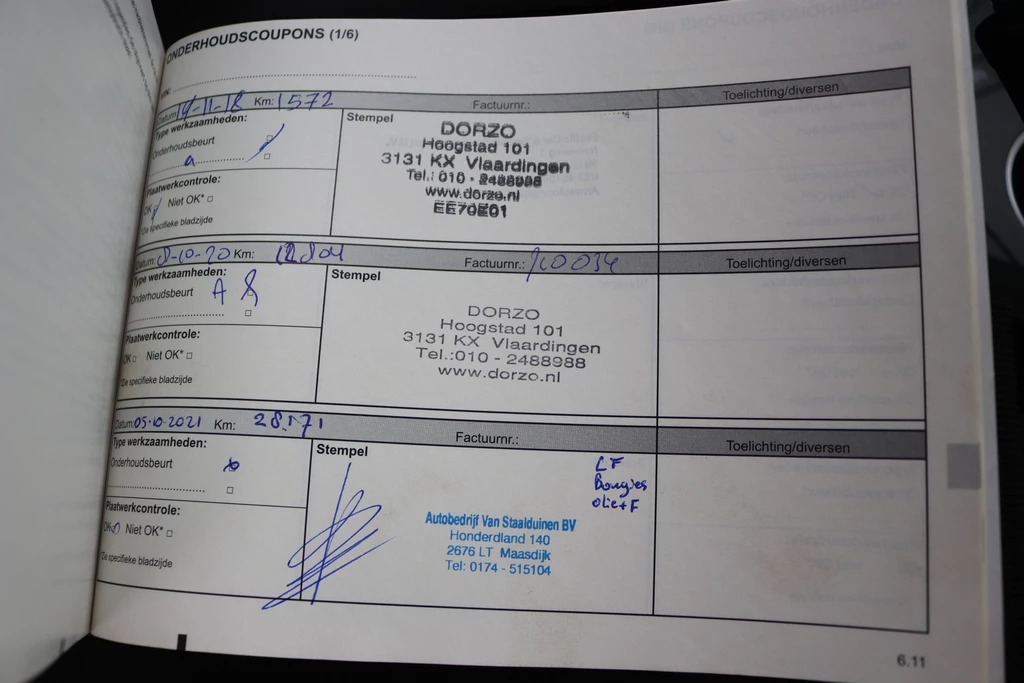 ONDERHOUDSCOUPONS (1/6)
Datum: 14-11-18 Km: 1572 Factuurnr.: Toelichting/diversen
Type werkzaamheden:
Onderhoudsbeurt
a
Plaatwerkcontrole:
OK Niet OK*
*De specifieke bladzijde
Stempel
DORZO
Hoogstad 101
3131 KX Vlaardingen
Tel.: 010 - 2488988
www.dorzo.nl
EE70E01
Datum: 8-10-20 Km: 12804 Factuurnr.: Toelichting/diversen
Type werkzaamheden:
Onderhoudsbeurt A
Plaatwerkcontrole:
OK Niet OK*
*De specifieke bladzijde
Stempel
DORZO
Hoogstad 101
3131 KX Vlaardingen
Tel.:010 - 2488988
www.dorzo.nl
Datum: 05-10-2021 Km: 28.171 Factuurnr.: Toelichting/diversen
Type werkzaamheden:
Onderhoudsbeurt
Plaatwerkcontrole:
OK Niet OK*
*De specifieke bladzijde
Stempel
LF
Bougies
olie+F
Autobedrijf Van Staalduinen BV
Honderdland 140
2676 LT Maasdijk
Tel: 0174 - 515104
6.11